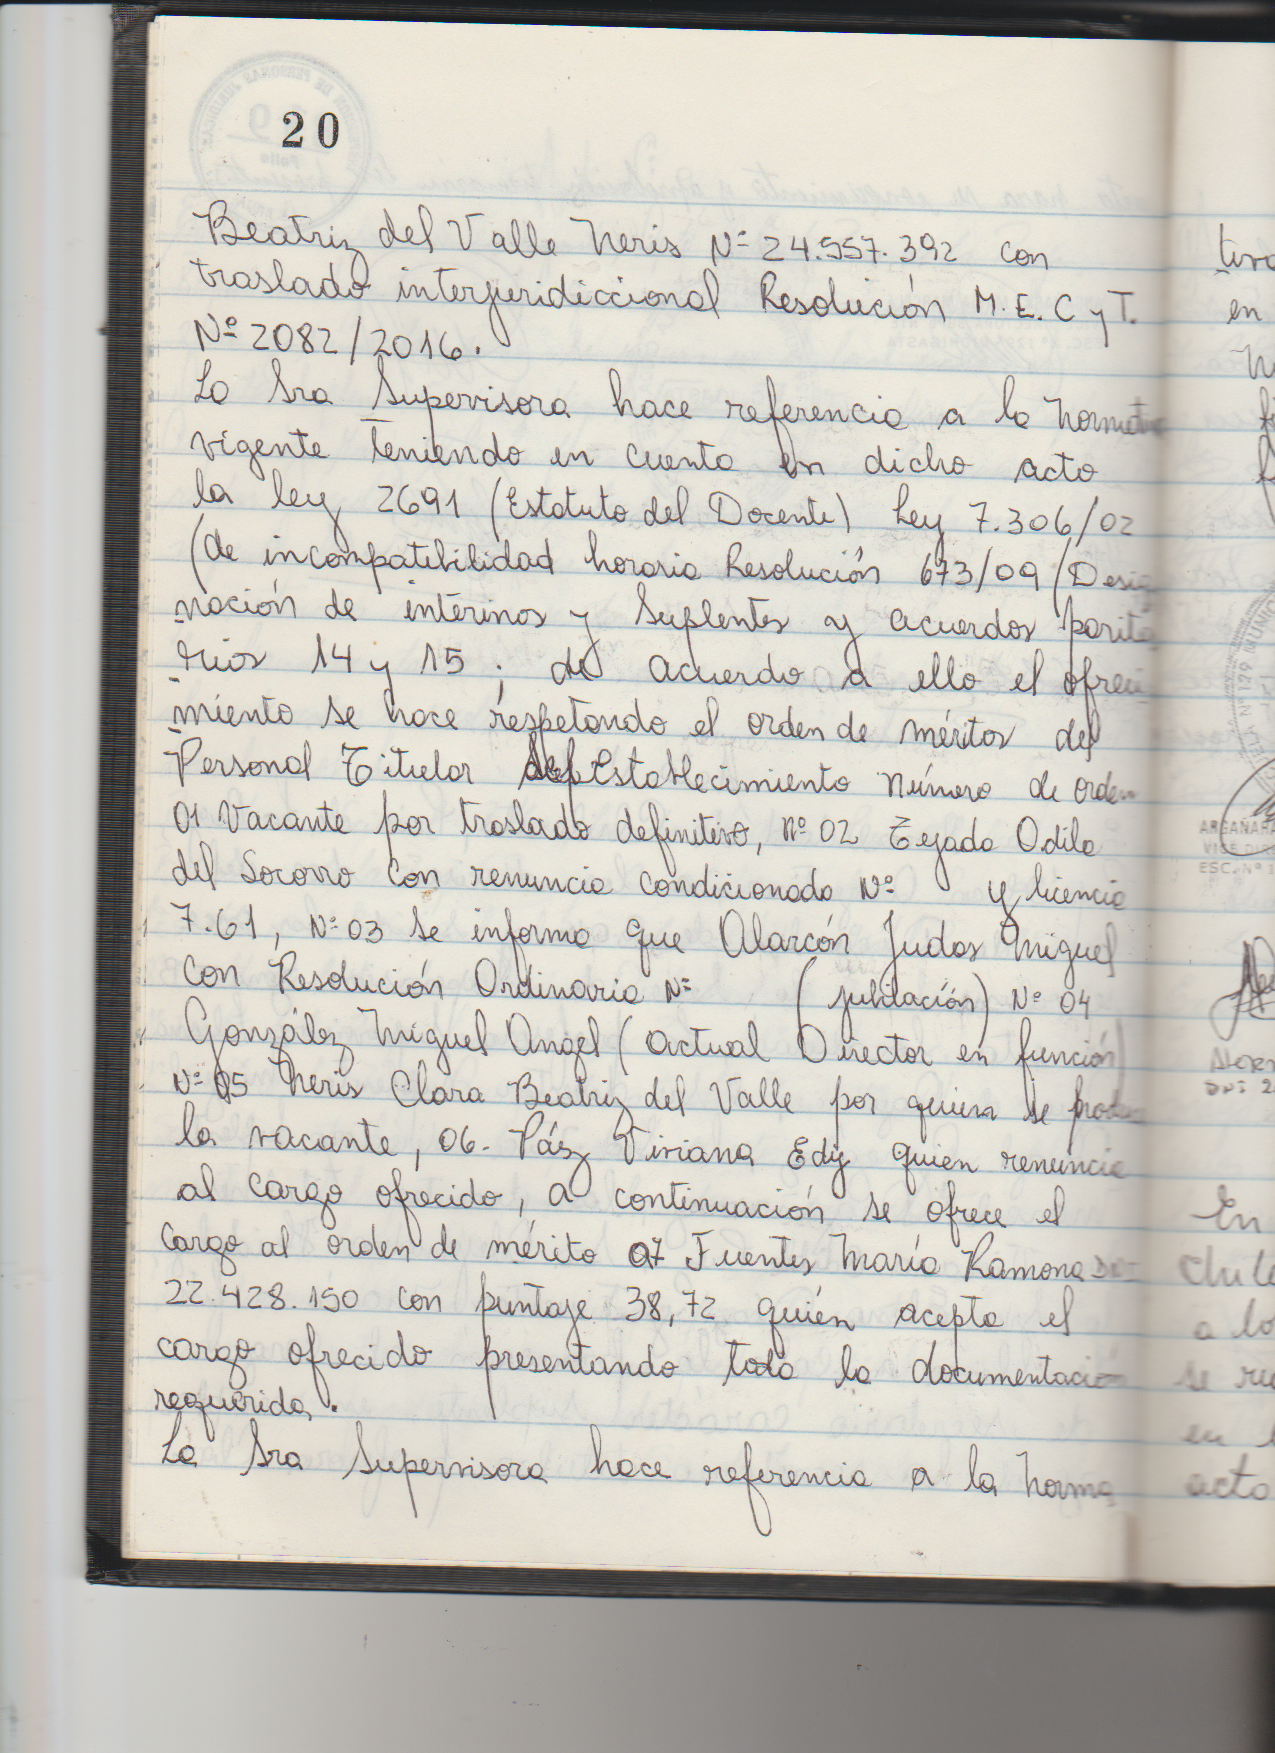 20
Beatriz del Valle Neris Nº 24.557.392 con
traslado interjuridiccional Resolución M.E.C y T.
Nº 2082/2016.
La Sra Supervisora hace referencia a la Normat
vigente teniendo en cuenta en dicho acto
la ley 2691 (Estatuto del Docente) Ley 7.306/02
(de incompatibilidad horaria Resolución 673/09 (Desig
nación de interinos y Suplentes y acuerdos parita
rios 14 y 15 ; de acuerdo a ello el ofreci
miento se hace respetando el orden de méritos del
Personal Titular del Establecimiento Número de orden
01 Vacante por traslado definitivo, nº 02 Tejada Odila
del Socorro con renuncia condicionada Nº y licencia
7.61, Nº 03 se informa que Alarcón Judas Miguel
con Resolución Ordinaria Nº (jubilación) Nº 04
González Miguel Angel (actual Director en función)
Nº 05 Neris Clara Beatriz del Valle por quien se produce
la vacante, 06- Páz Viviana Edy quien renuncia
al cargo ofrecido, a continuación se ofrece el
cargo al orden de mérito 07 Fuentes María Ramona DNI
22.428.150 con puntaje 38,72 quién acepta el
cargo ofrecido presentando toda la documentación
requerida.
La Sra Supervisora hace referencia a la norma
tiva
en
En
a lo
se
en
acto
ESC. Nº 1